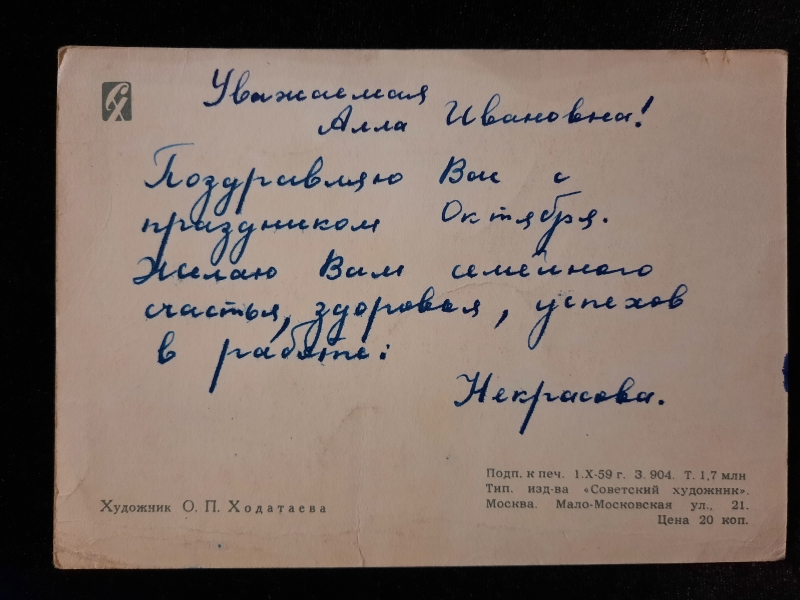 СХ
Уважаемая
Алла Ивановна!
Поздравляю Вас с
праздником Октября.
Желаю Вам семейного
счастья, здоровья, успехов
в работе.
Некрасова.
Подп. к печ. 1.X-59 г. З. 904. Т. 1,7 млн
Тип. изд-ва «Советский художник».
Москва. Мало-Московская ул., 21.
Цена 20 коп.
Художник О. П. Ходатаева